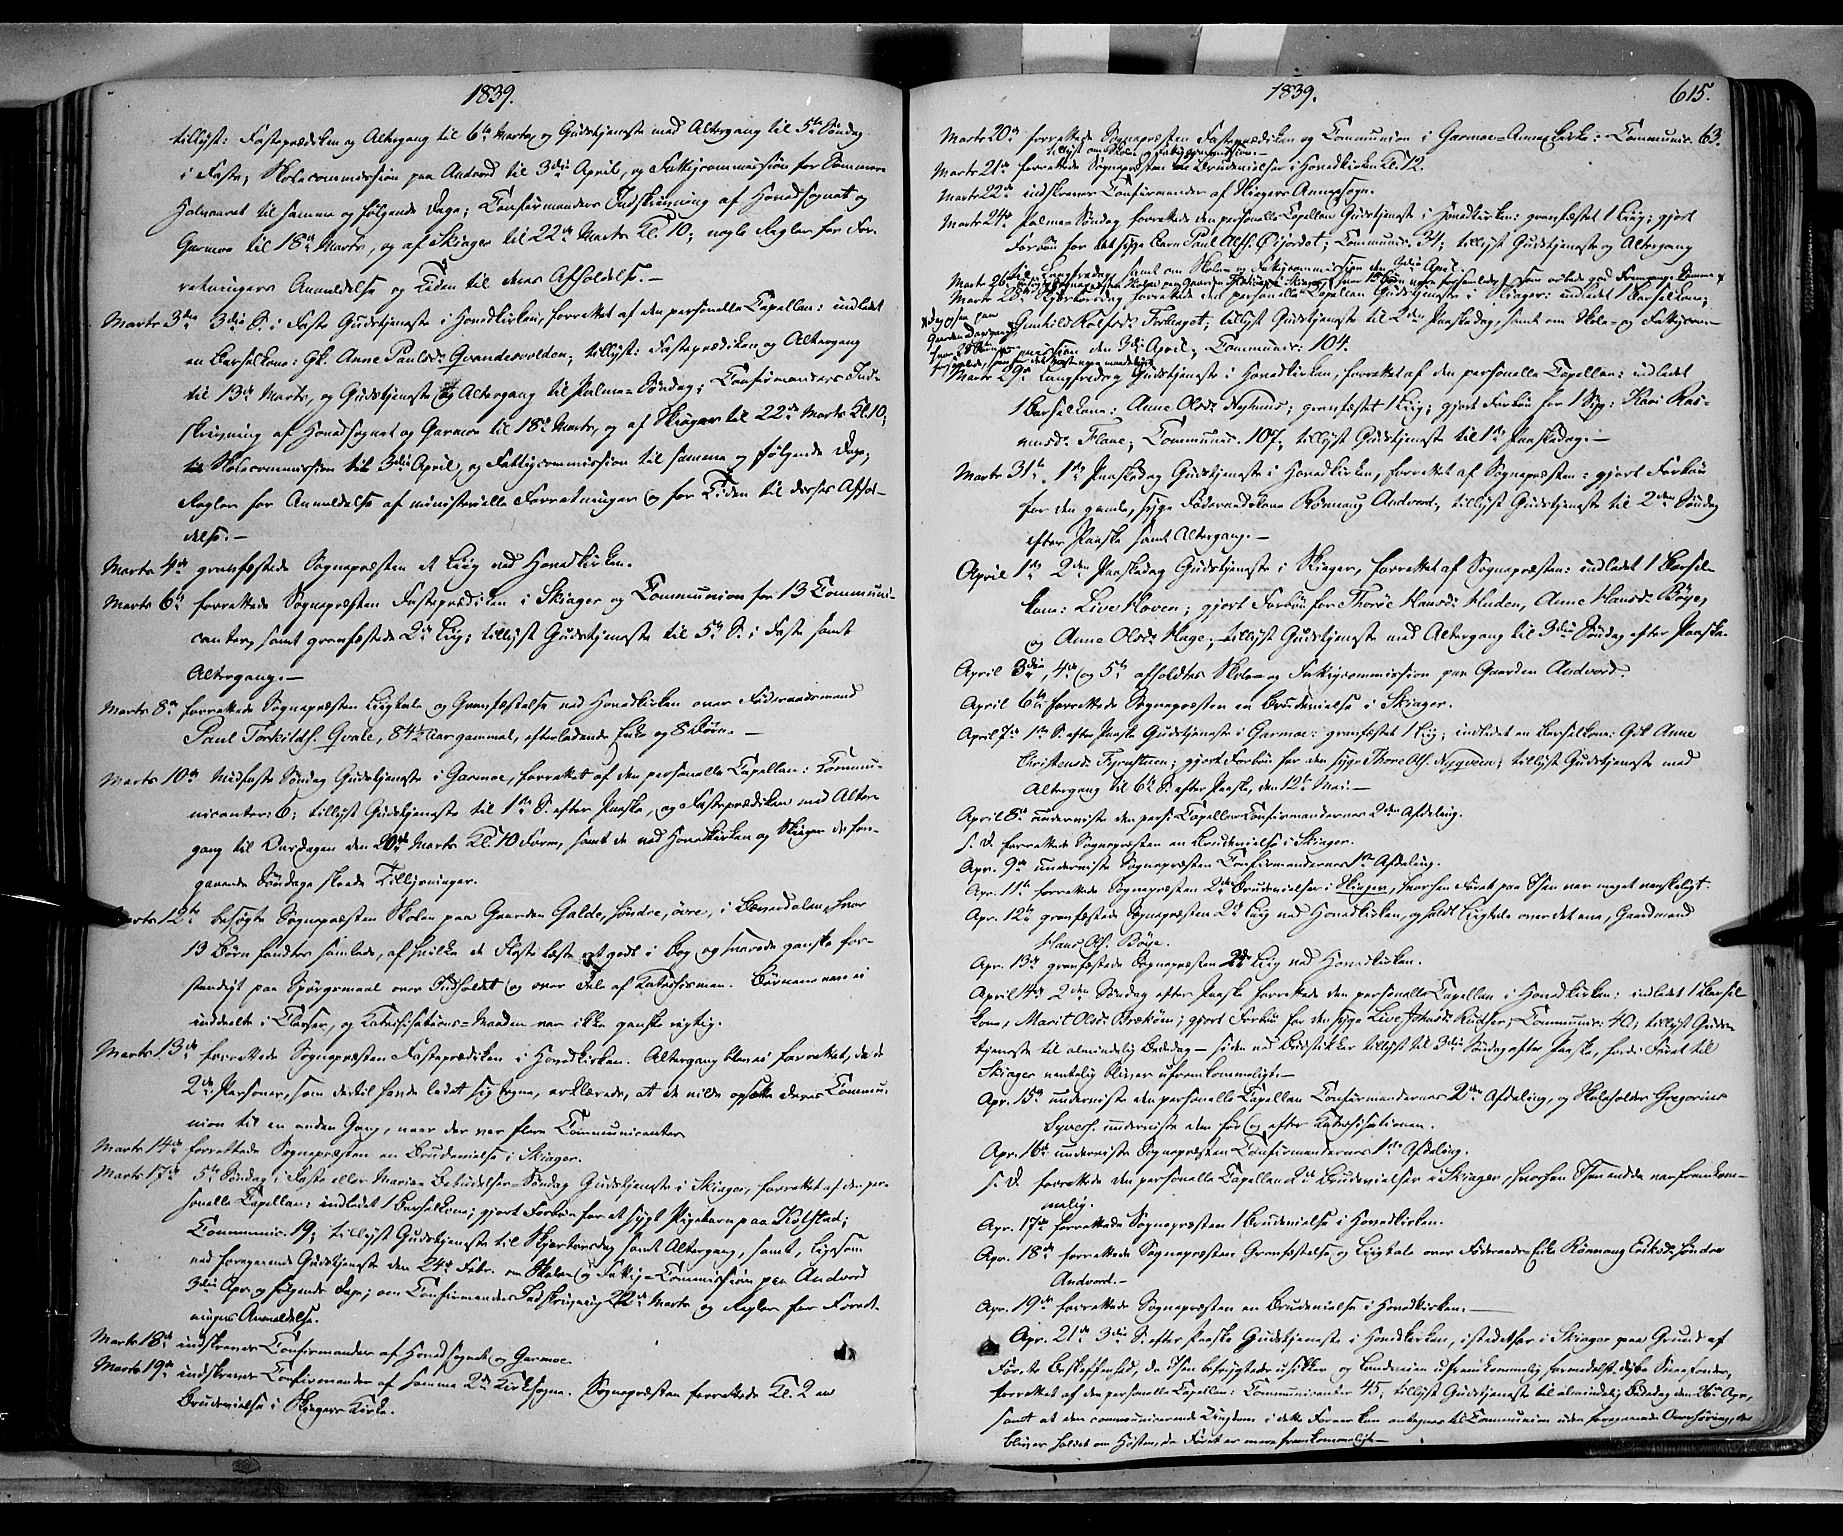 1839.
tillyst: Fasteprædiken og Altergang til 6te Marts og Gudstjeneste med Altergang til 5te Søndag
i Faste; Skolecommission paa Andvord til 3die April, og Fattigcommission for Sommer
Halvaaret til samme og følgende Dage; Confirmanders Indskrivning af Hovedsognet og
Garmoe til 18de Marts, og af Skiager til 22de Marts Kl. 10; nogle Regler for For-
retningers Anmeldelse og Tiden til deres Afholdelse.—
Marts 3die 3die S. i Faste Gudstjeneste i Hovedkirken, forrettet af den personelle Capellan: indledet
en Barselkone: Gk. Anne Paulsd. Qvandesvolden; tillyst: Fasteprædiken og Altergang
til 13de Marts, og Gudstjeneste og Altergang til Palme-Søndag; Confirmanders Ind-
skrivning af Hovedsognet og Garmoe til 18de Marts, og af Skiager til 22de Marts Kl. 10;
Skolecommission til 3die April, og Fattigcommission til samme og følgende Dage;
Regler for Anmeldelse af ministerielle Forretninger og for Tiden til deres Afhol-
delse.—
Marts 4de gravfæstede Sognepræsten et Liig ved Hovedkirken.
Marts 6te forrettede Sognepræsten Fasteprædiken i Skiager og Communion for 13 Communi-
canter, samt gravfæstede 2de Liig; tillyst Gudstjeneste til 5te S. i Faste samt
Altergang.—
Marts 8de forrettede Sognepræsten Liigtale og Gravfæstelse ved Hovedkirken over Føderaadsmand
Paul Torkildss. Qvale, 84½ Aar gammel, efterladende Enke og 8 Børn.—
Marts 10de Midfaste Søndag Gudstjeneste i Garmoe, forrettet af den personelle Capellan: Commu-
nicanter: 6; tillyst Gudstjeneste til 1ste S. efter Paaske, og Fasteprædiken med Alter-
gang til Onsdagen den 20de Marts Kl. 10 Form., samt de ved Hovedkirken og Skiager de fore-
gaaende Søndage skeede Tillysninger.
Marts 12te besøgte Sognepræsten Skolen paa Gaarden Galde, søndre, øvre, i Bæverdalen, hvor
13 Børn fandtes samlede, af hvilke de Fleste læste ret godt i Bog og svarede ganske for-
standigt paa Spørgsmaal over Indholdet og over Dele af Katechismen. Børnene vare ei
inddeelte i Classer, og Katechisations-Maaden var ikke ganske rigtig.
Marts 13de forrettede Sognepræsten Fasteprædiken i Hovedkirken. Altergang blev ei forrettet, da de
2de Personer, som dertil havde ladet sig tegne, erklærede, at de vilde opsætte deres Commu-
nion til en anden Gang, naar der var flere Communicanter.
Marts 14de forrettede Sognepræsten en Brudevielse i Skiager.
Marts 17de 5te Søndag i Faste eller Mariæ Bebudelses-Søndag Gudstjeneste i Skiager, forrettet af den per-
sonelle Capellan: indledet 1 Barselkone; gjort Forbøn for et sygt Pigebarn paa Kolstad;
Communic. 19; tillyst Gudstjeneste til Skjærtorsdag samt Altergang, samt, ligesom
ved foregaaende Gudstjeneste den 24de Febr. om Skole- og Fattig-Commission paa Andvord
3die Apr. og følgende Dage; om Confirmanders Indskrivning 22de Marts og Regler for Forret-
ningers Anmeldelse.
Marts 18de indskreves Confirmander af Hovedsognet og Garmoe.
Marts 19de indskreves Confirmander af samme 2de Kirkesogne. Sognepræsten forrettede Kl. 2 en
Brudevielse i Skiagers Kirke.
1839.
615.
Marts 20de forrettede Sognepræsten Fasteprædiken og Communion i Garmoe-Annexkirke: Communic. 63.
tillyst om Skole- og Fattigcommission.
Marts 21de forrettede Sognepræsten en Brudevielse i Hovedkirken Kl. 12.
Marts 22de indskreves Confirmander af Skiagers Annexsogn.
Marts 24de Palme-Søndag forrettede den personelle Capellan Gudstjeneste i Hovedkirken: gravfæstet 1 Liig; gjort
Forbøn for det syge Barn Paul Olss. Øijordet; Communic. 34; tillyst Gudstjeneste og Altergang
til Langfredag, samt om Skole- og Fattigcommission den 3die April.
Marts 26de besøgte Sognepræsten Skolen paa Gaarden i Skiager, hvor 15 Børn vare forsamlede, som viste god Fremgang. Samme
Marts 28de Skjærtorsdag forrettede den personelle Capellan Gudstjeneste i Skiager: indledet 1 Barselkone;
Dag ogsaa paa
Gunhild Rolfsd. Forbergot; tillyst Gudstjeneste til 2den Paaskedag, samt om Skole- og Fattigcom-
Gaarden
mission den 3die April; Communic. 104.
Marts 29de Langfredag Gudstjeneste i Hovedkirken, forrettet af den personelle Capellan: indledet
1 Barselkone: Anne Olsd. Nylund; gravfæstet 1 Liig; gjort Forbøn for 1 Syg: Kari Ras-
musd. Flaae; Communic. 107; tillyst Gudstjeneste til 1ste Paaskedag.—
Marts 31te 1ste Paaskedag Gudstjeneste i Hovedkirken, forrettet af Sognepræsten: gjort Forbøn
for den gamle, syge Føderaadskone Rønnaug Andvord; tillyst Gudstjeneste til 2den Søndag
efter Paaske samt Altergang.—
April 1ste 2den Paaskedag Gudstjeneste i Skiager, forrettet af Sognepræsten: indledet 1 Barsel-
kone: Live Hoven; gjort Forbøn for Thorøe Hansd. Huden, Anne Hansd. Bøye,
og Anne Olsd. Hage; tillyst Gudstjeneste med Altergang til 3die Søndag efter Paaske.
April 3die, 4de og 5te afholdtes Skole- og Fattigcommission paa Gaarden Andvord.
April 6te forrettede Sognepræsten en Brudevielse i Skiager.
April 7de 1ste S. efter Paaske Gudstjeneste i Garmoe: gravfæstet 1 Liig; indledet en Barselkone: Gk. Anne
Christensd. Tyrnsteen; gjort Forbøn for den syge Thore Ols. Nyqveen; tillyst Gudstjeneste med
Altergang til 6te S. efter Paaske, den 12te Mai.—
April 8de underviste den pers. Capellan Confirmandernes 2den Afdeling.
s. D. forrettede Sognepræsten en Brudevielse i Skiager.
Apr. 9de underviste Sognepræsten Confirmandernes 1ste Afdeling.
Apr. 11te forrettede Sognepræsten 2de Brudevielser i Skiager, hvorhen Føret paa Isen var meget vanskeligt.
Apr. 12te gravfæstede Sognepræsten 2de Liig ved Hovedkirken, og holdt Liigtale over det ene, Gaardmand
Hans Ols. Bøye.
Apr. 13de gravfæstede Sognepræsten 2de Liig ved Hovedkirken.
April 14de 2den Søndag efter Paaske forrettede den personelle Capellan i Hovedkirken: indledet 1 Barsel-
kone, Marit Olsd. Brækøm; gjort Forbøn for den syge Live Rudser; Communic. 40; tillyst Guds-
tjeneste til almindelig Bededag – siden ved Budstikker tillyst til 3die Søndag efter Paaske, fordi Føret til
Skiager ventelig bliver ufremkommeligt.—
Apr. 15de underviste den personelle Capellan Confirmandernes 2den Afdeling, og Skoleholder Gregorius
Syvers. underviste dem før og efter Katechisationen.
Apr. 16de underviste Sognepræsten Confirmandernes 1ste Afdeling.
s. D. forrettede den personelle Capellan 2de Brudevielser i Skiager, hvorhen Isen endda var fremkom-
melig.
Apr. 17de forrettede Sognepræsten 1 Brudevielse i Hovedkirken.
Apr. 18de forrettede Sognepræsten Gravfæstelse og Liigtale over Føderaads-Enke Rønnaug Eriksd. søndre
Andvord.—
Apr. 19de forrettede Sognepræsten en Brudevielse i Hovedkirken.—
Apr. 21de 3die S. efter Paaske Gudstjeneste i Hovedkirken, istedetfor i Skiager paa Grund af
Førets Beskaffenhed, da Isen befrygtedes usikker og Landeveien ufremkommelig formedelst dybe Sneefonder,
forrettet af den personelle Capellan: Communicanter 45; tillyst Gudstjeneste til almindelig Bededag den 26de Apr.,
samt at den communicerende Ungdom i dette Foraar kan antegnes til Communion uden foregaaende Overhøring, der
bliver holdet om Høsten, da Føret er mere fremkommeligt.—